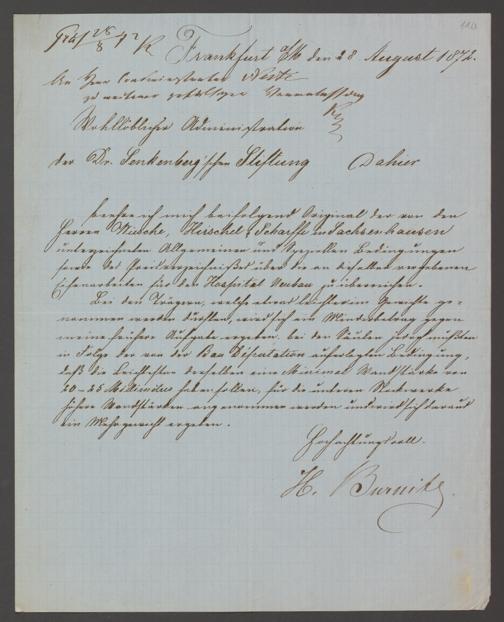 110
Präs 28/8 72 R
Frankfurt a/M den 28 August 1872.
An Herrn
zu weiterer gefälligen Veranlassung
Wohllöbliche Administration
der Dr. Senkenberg'schen Stiftung Dahier
beehre ich mich beifolgend Original der von den
Herren Wiesche, Hirschel, Scharffe in Sachsenhausen
unterzeichneten Allgemeinen und Speziellen Bedingungen
sowie des Preisverzeichnißes über die an dieselben vergebenen
Eisenarbeiten für den Hospital Neubau zu überreichen.
Bei den Trägern, welche etwas leichter im Gewichte ge-
nommen werden dürften, wird sich ein Minderbetrag gegen
meine frühere Aufgabe ergeben, bei den Säulen jedoch müßten
in Folge der von der Bau Deputation auferlegten Bedingung,
daß die leichtesten derselben eine Minimal Wandstärke von
20-25 Millimeter haben sollen, für die unteren Stockwerke
höhere Wandstärken angenommen werden und wird sich daraus
ein Mehrgewicht ergeben.
Hochachtungsvoll.
H. Burnitz.